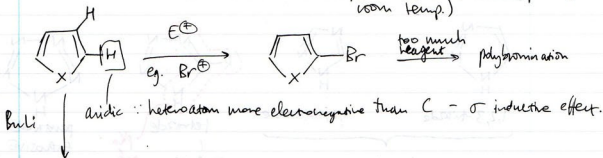 room temp.)
H
E⊕
too much
reagent
H
Br
polybromination
X
eg. Br⊕
X
BuLi
acidic ∵ heteroatom more electronegative than C - σ inductive effect.